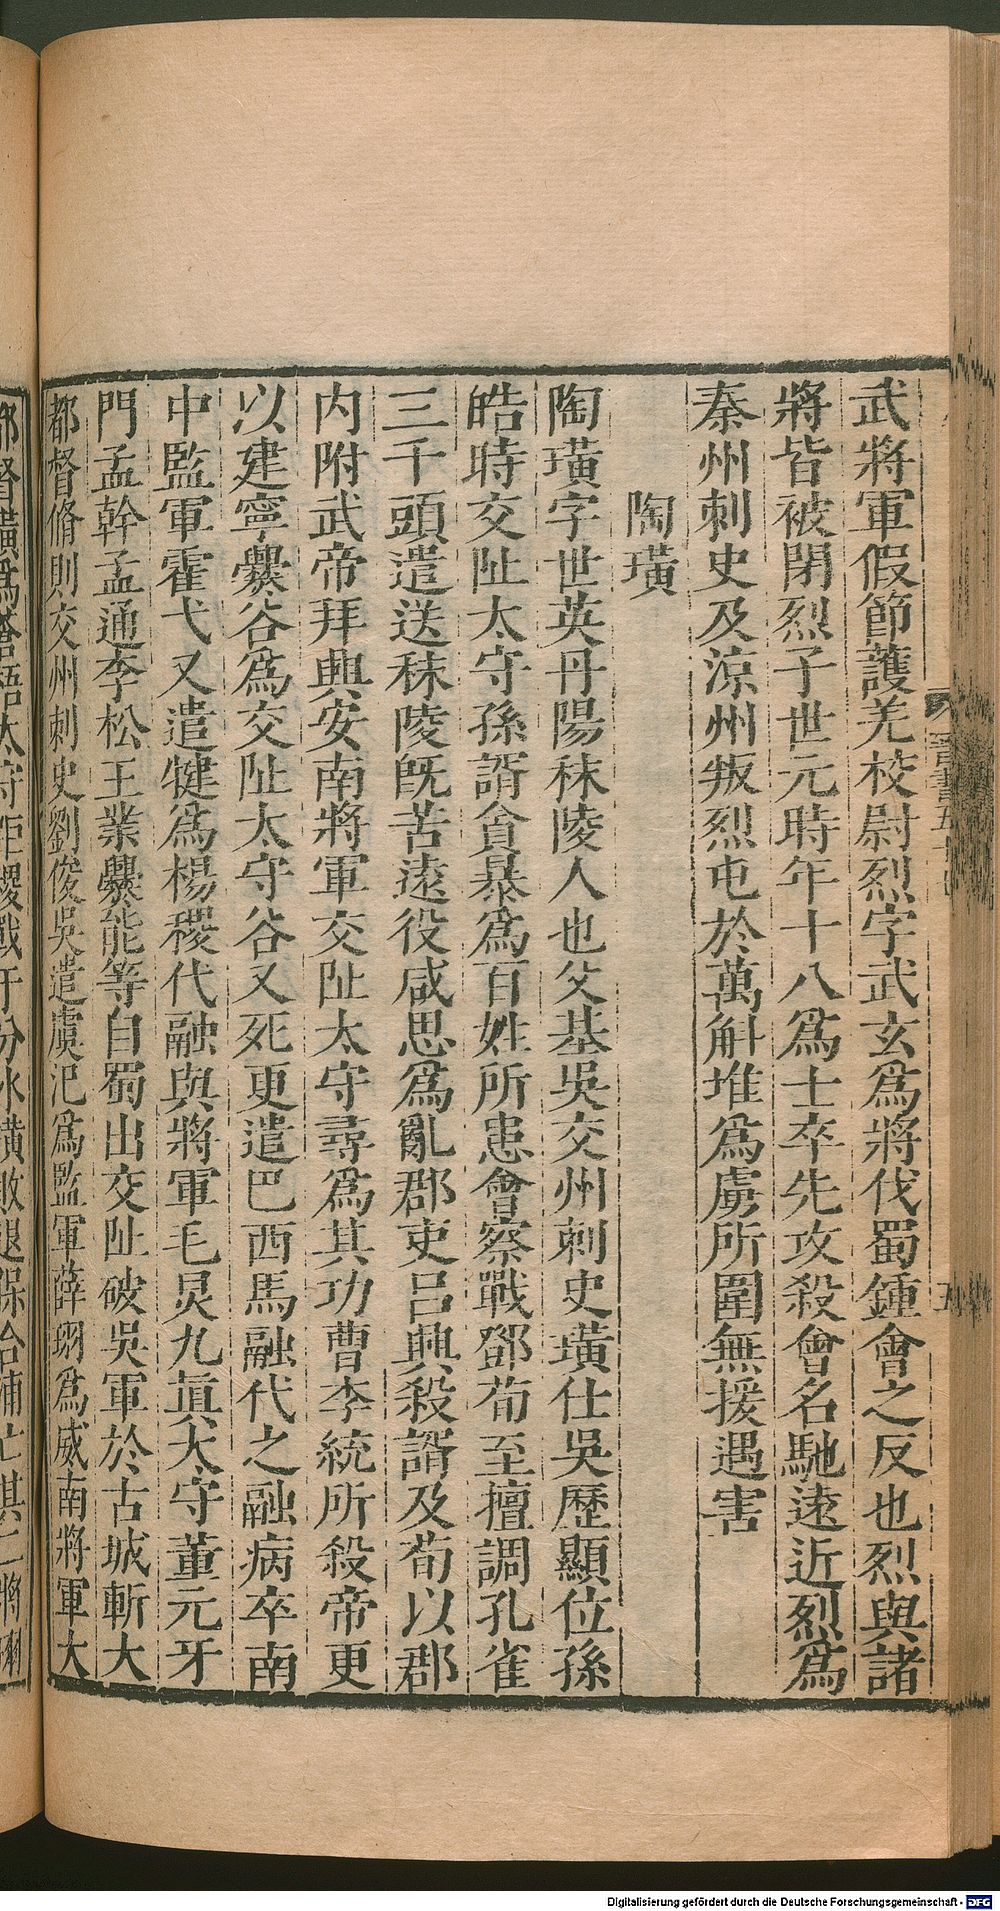 武將軍假節護羌校尉烈字武玄爲將伐蜀鍾會之反也烈與諸
將皆被閉烈子世元時年十八爲士卒先攻殺會名馳遠近烈爲
秦州刺史及涼州叛烈屯於萬斛堆爲虜所圍無援遇害
陶璜
陶璜字世英丹陽秣陵人也父基吳交州刺史璜仕吳歷顯位孫
皓時交阯太守孫諝貪暴爲百姓所患會察戰鄧荀至擅調孔雀
三千頭遣送秣陵旣苦遠役咸思爲亂郡吏呂興殺諝及荀以郡
内附武帝拜興安南將軍交阯太守尋爲其功曹李統所殺帝更
以建寧爨谷爲交阯太守谷又死更遣巴西馬融代之融病卒南
中監軍霍弋又遣犍爲楊稷代融與將軍毛炅九眞太守董元牙
門孟幹孟通李松王業爨能等自蜀出交阯破吳軍於古城斬大
都督脩則交州刺史劉俊吳遣虞汜爲監軍薛珝爲威南將軍大
都督璜爲蒼梧太守距稷戰于分水璜敗退保合浦亡其二將珝
Digitalisierung gefördert durch die Deutsche Forschungsgemeinschaft - DFG